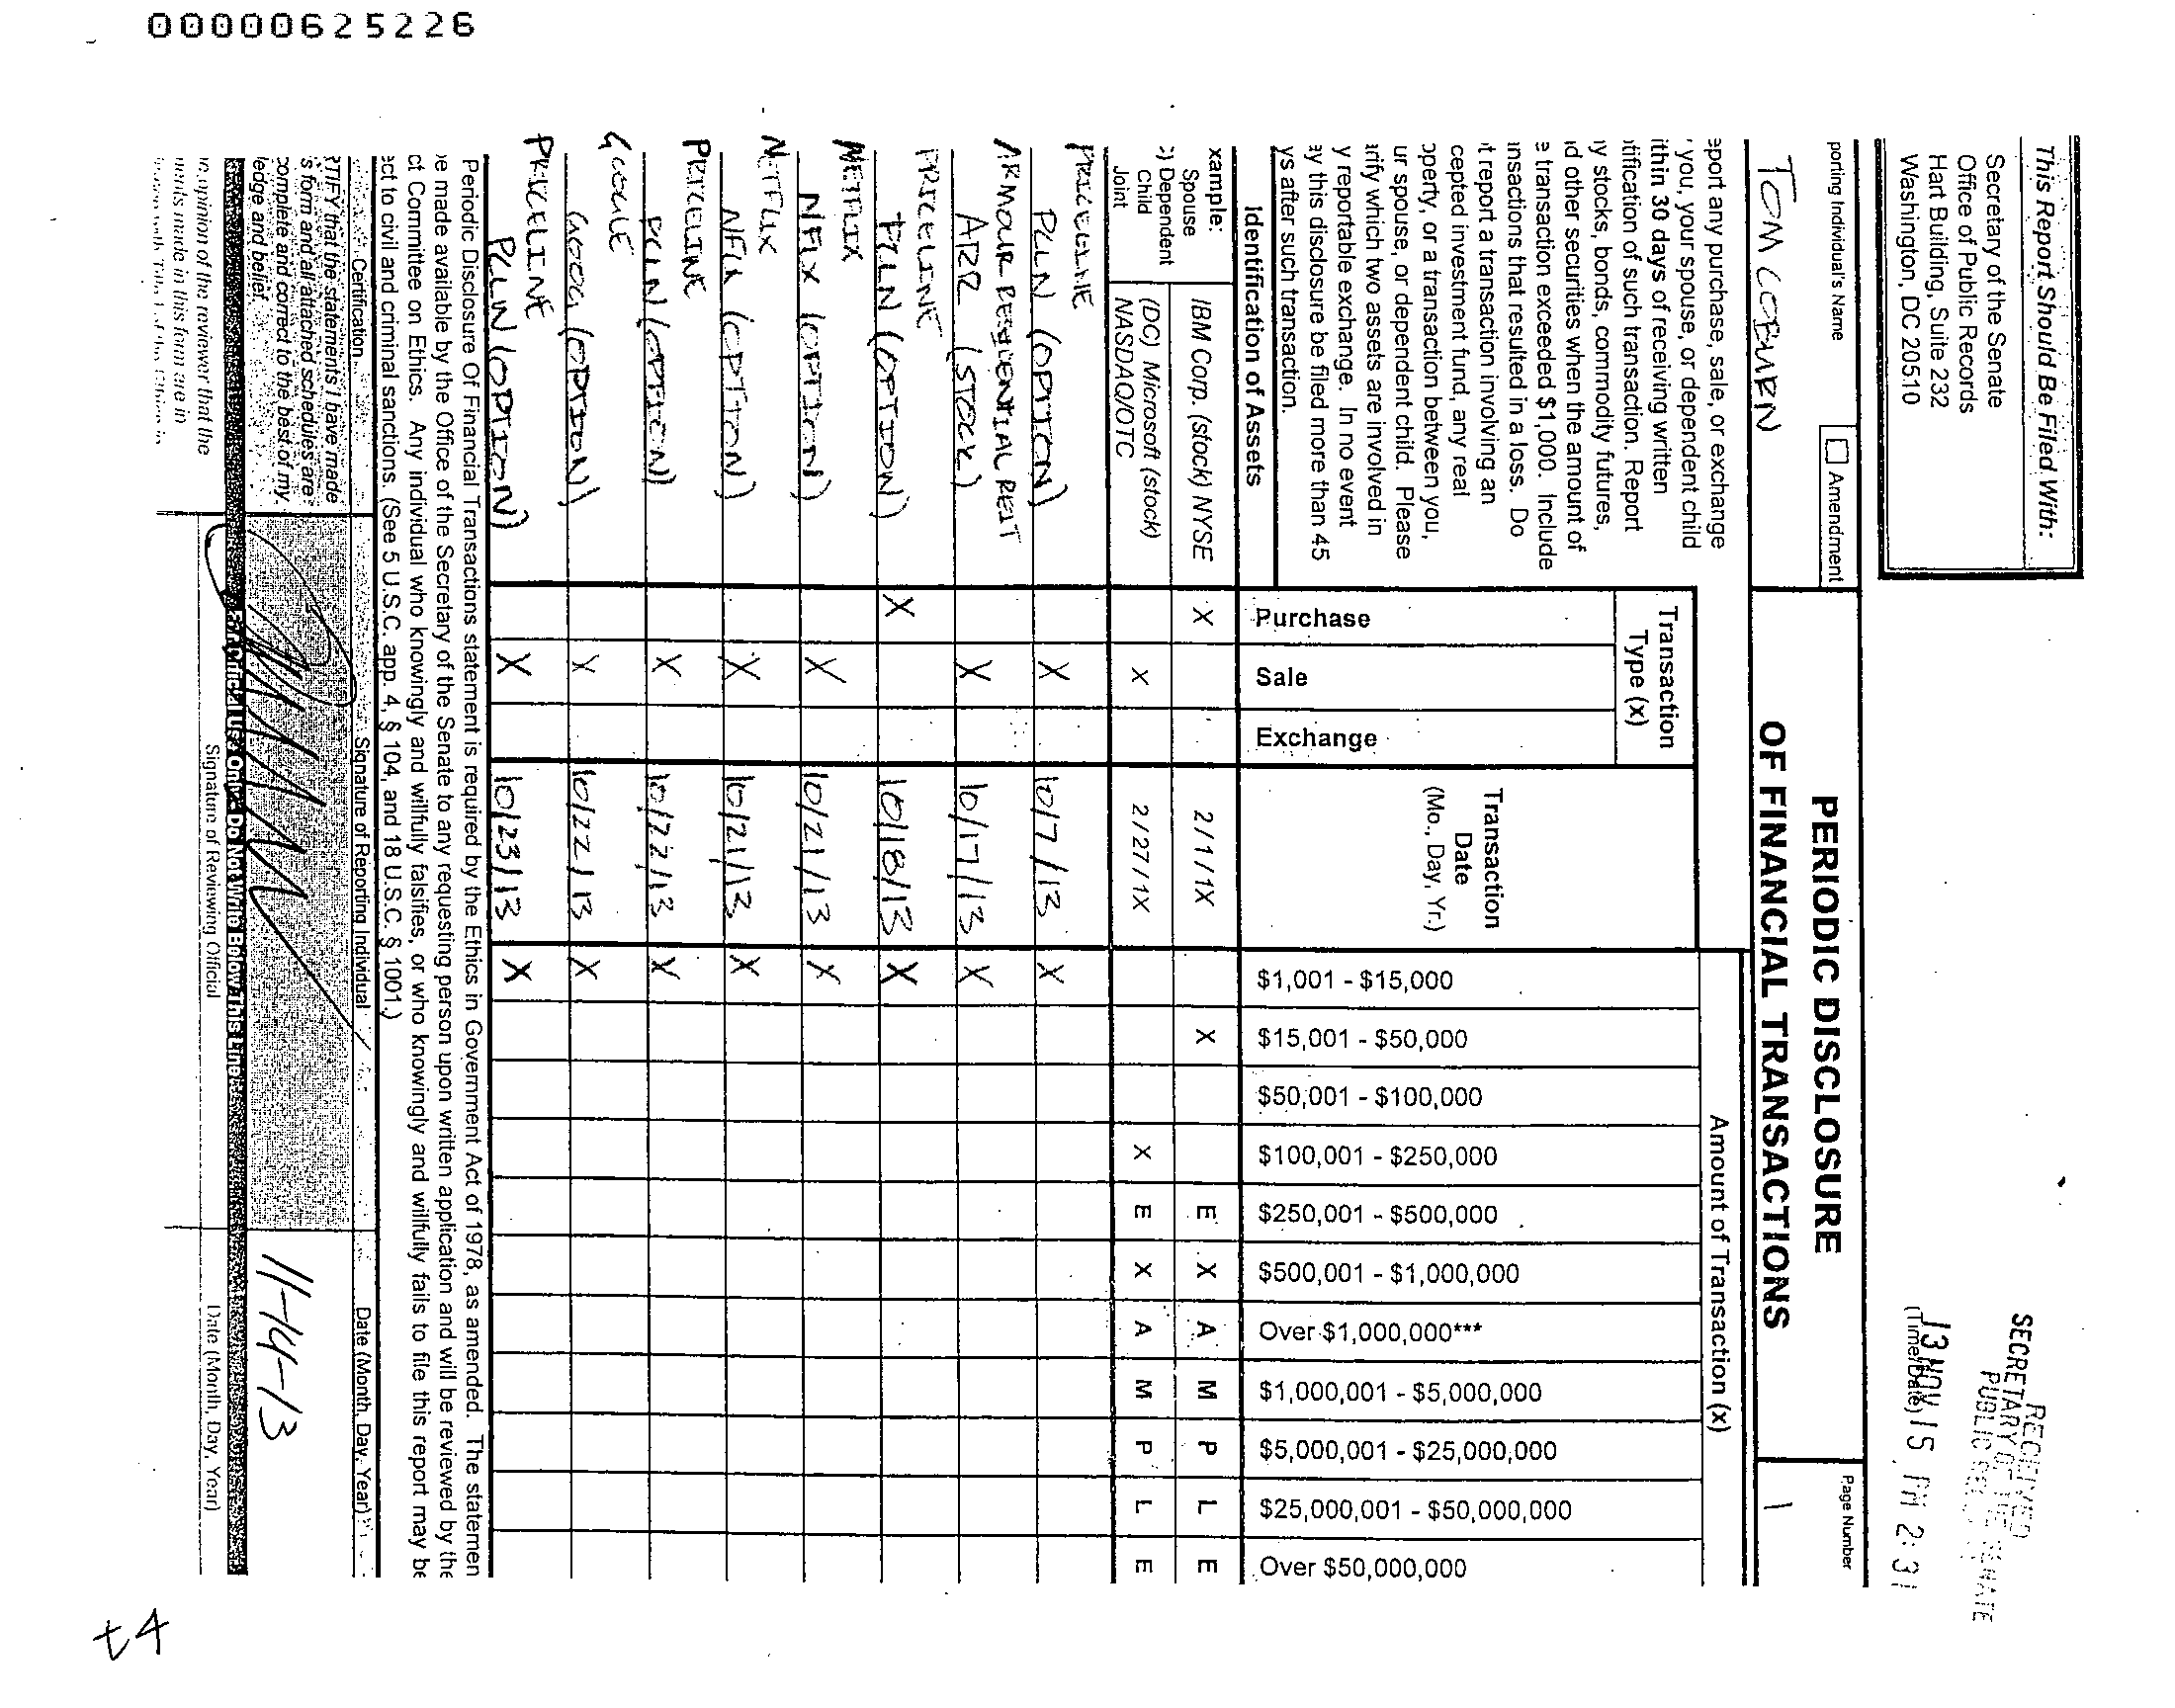 00000625226
This Report Should Be Filed With:
Secretary of the Senate
Office of Public Records
Hart Building, Suite 232
Washington, DC 20510
RECEIVED
SECRETARY OF THE SENATE
PUBLIC
13 NOV 15 PM 2:31
(Time/Date)
porting Individual's Name
☐ Amendment
TOM COBURN
PERIODIC DISCLOSURE
OF FINANCIAL TRANSACTIONS
Page Number
1
eport any purchase, sale, or exchange
you, your spouse, or dependent child
ithin 30 days of receiving written
tification of such transaction. Report
ny stocks, bonds, commodity futures,
nd other securities when the amount of
e transaction exceeded $1,000. Include
ansactions that resulted in a loss. Do
ot report a transaction involving an
cepted investment fund, any real
operty, or a transaction between you,
ur spouse, or dependent child. Please
arify which two assets are involved in
y reportable exchange. In no event
ay this disclosure be filed more than 45
ys after such transaction.
Identification of Assets
Transaction
Type (x)
Purchase
Sale
Exchange
Transaction
Date
(Mo., Day, Yr.)
Amount of Transaction (x)
$1,001 - $15,000
$15,001 - $50,000
$50,001 - $100,000
$100,001 - $250,000
$250,001 - $500,000
$500,001 - $1,000,000
Over $1,000,000***
$1,000,001 - $5,000,000
$5,000,001 - $25,000,000
$25,000,001 - $50,000,000
Over $50,000,000
xample:
Spouse
) Dependent
Child
Joint
IBM Corp. (stock) NYSE X 2/1/1X X E X A M P L E
(DC) Microsoft (stock)
NASDAQ/OTC X 2/27/1X X E X A M P L E
PRICELINE
PCLN (OPTION) X 10/7/13 X
ARMOUR RESIDENTIAL REIT
ARR (STOCK) X 10/17/13 X
PRICELINE
PCLN (OPTION) X 10/18/13 X
NETFLIX
NFLX (OPTION) X 10/21/13 X
NETFLIX
NFLX (OPTION) X 10/21/13 X
PRICELINE
PCLN (OPTION) X 10/22/13 X
GOOGLE
GOOG (OPTION) X 10/22/13 X
PRICELINE
PCLN (OPTION) X 10/23/13 X
Periodic Disclosure Of Financial Transactions statement is required by the Ethics in Government Act of 1978, as amended. The statemen
be made available by the Office of the Secretary of the Senate to any requesting person upon written application and will be reviewed by the
ct Committee on Ethics. Any individual who knowingly and willfully falsifies, or who knowingly and willfully fails to file this report may be
ect to civil and criminal sanctions. (See 5 U.S.C. app. 4, § 104, and 18 U.S.C. § 1001.)
Certification
Signature of Reporting Individual
Date (Month, Day, Year)
RTIFY that the statements I have made
s form and all attached schedules are
complete and correct to the best of my
ledge and belief.
11-14-13
For Official Use Only - Do Not Write Below This Line
opinion of the reviewer that the
ments made in this form are in
Signature of Reviewing Official
Date (Month, Day, Year)
t4